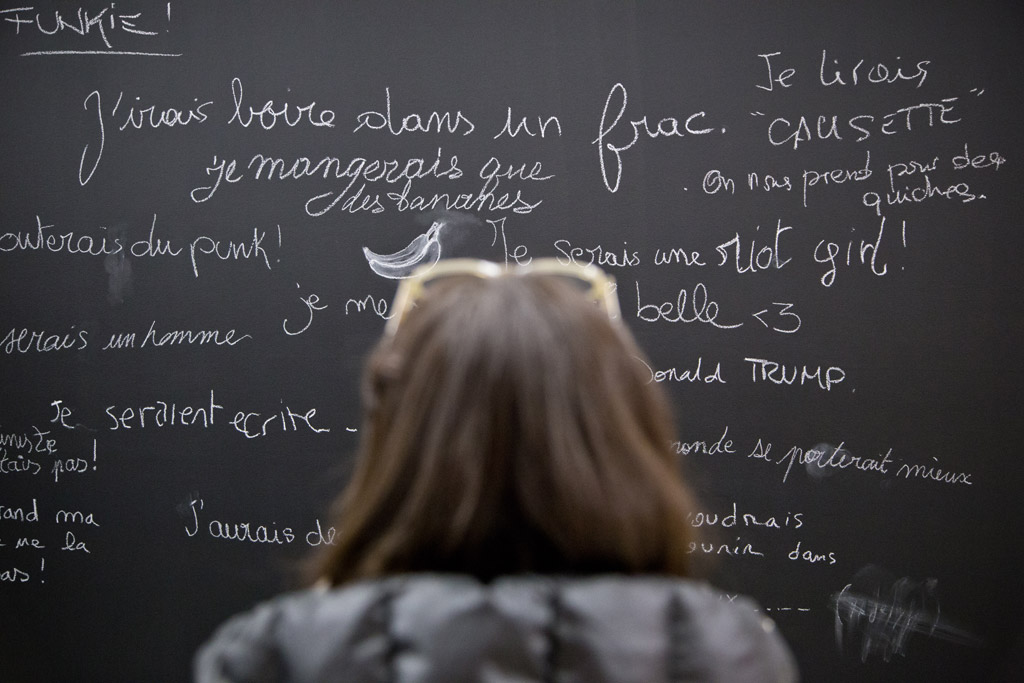 FUNKIE!
J'irais boire dans un frac.
Je lirais
"CAUSETTE"
je mangerais que
des bananes
. On nous prend pour des
quiches.
outerais du punk!
Je serais une riot girl!
je me
belle <3
serais un homme
Donald TRUMP.
Je seraient ecrire -
niste
tais pas!
monde se porterait mieux
rand ma
e me la
as!
J'aurais de
oudrais
ourir dans